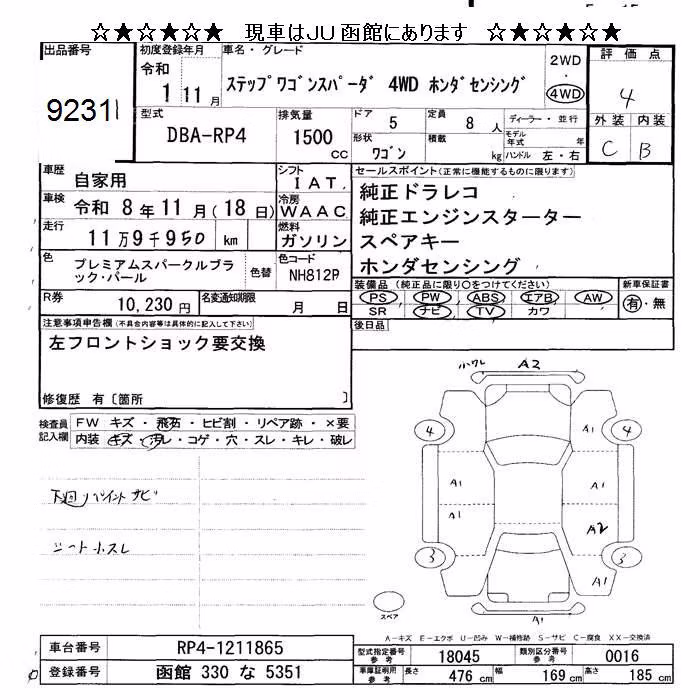 ☆★☆★☆★ 現車はJU函館にあります ☆★☆★☆★
出品番号
9231
初度登録年月
令和
1 11月
車名・グレード
ステップワゴンスパーダ 4WD ホンダセンシング
2WD
・
4WD
評価点
4
外装 内装
C B
型式
DBA-RP4
排気量
1500
CC
ドア
5
定員
8 人
形状
ワゴン
積載
kg
ディーラー・並行
モデル年式 年
ハンドル 左・右
車歴
自家用
シフト
IAT.
車検
令和 8年11月(18日)
冷房
WAAC
走行
11万9千950 km
燃料
ガソリン
色
プレミアムスパークルブラック・パール
色替
色コード
NH812P
R券
10,230円
名変通知期限
月 日
セールスポイント(正常に機能するものに限ります)
純正ドラレコ
純正エンジンスターター
スペアキー
ホンダセンシング
装備品(純正品に限り○をつけてください)
PS PW ABS エアB AW
SR ナビ TV カワ
新車保証書
有・無
後日品
注意事項申告欄(不具合内容等は具体的に記入して下さい)
左フロントショック要交換
修復歴 有〔箇所 〕
検査員記入欄
FW キズ・飛石・ヒビ割・リペア跡・×要
内装 キズ・汚レ・コゲ・穴・スレ・キレ・破レ
下回りペイントサビ
シート小スレ
小ワレ A2
4 A1 4
A1 A1
A1 A2
3 A1 3
スペア
A1
A-キズ E-エクボ U-凹み W-補修跡 S-サビ C-腐食 XX-交換済
車台番号
RP4-1211865
登録番号
函館 330 な 5351
型式指定番号
参考
18045
類別区分番号
参考
0016
車庫証明用
参考
長さ 476 cm 幅 169 cm 高さ 185 cm